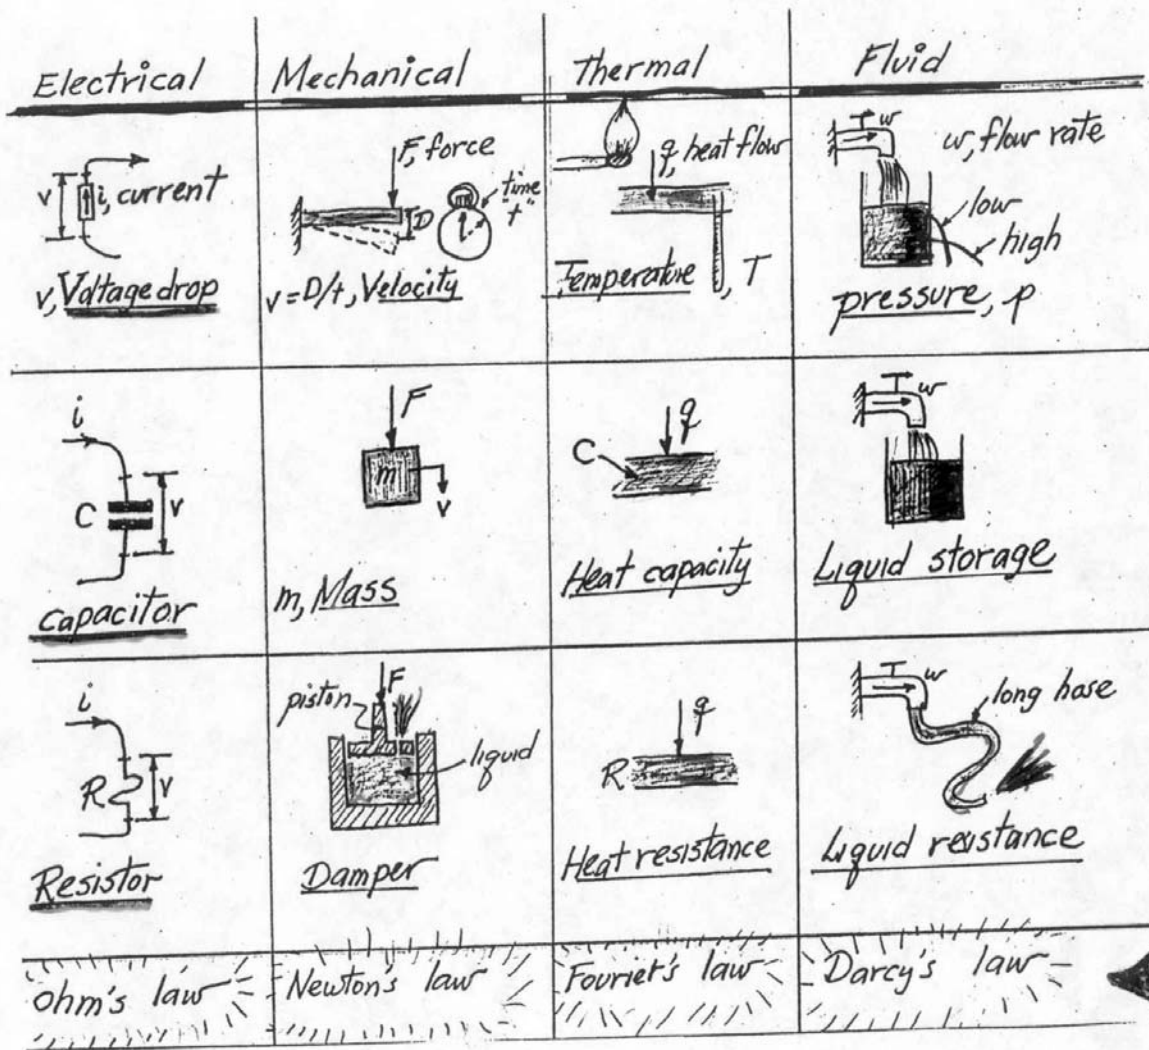 Electrical Mechanical Thermal Fluid
v i, current
v, Voltage drop
F, force
"time
"t"
D
v = D/t, Velocity
q heat flow
Temperature, T
w w, flow rate
low
high
pressure, p
i
C v
capacitor
F
m
v
m, Mass
q
C
Heat capacity
w
Liquid storage
i
R v
Resistor
F
piston
liquid
Damper
q
R
Heat resistance
w
long hose
Liquid resistance
Ohm's law Newton's law Fouriet's law Darcy's law